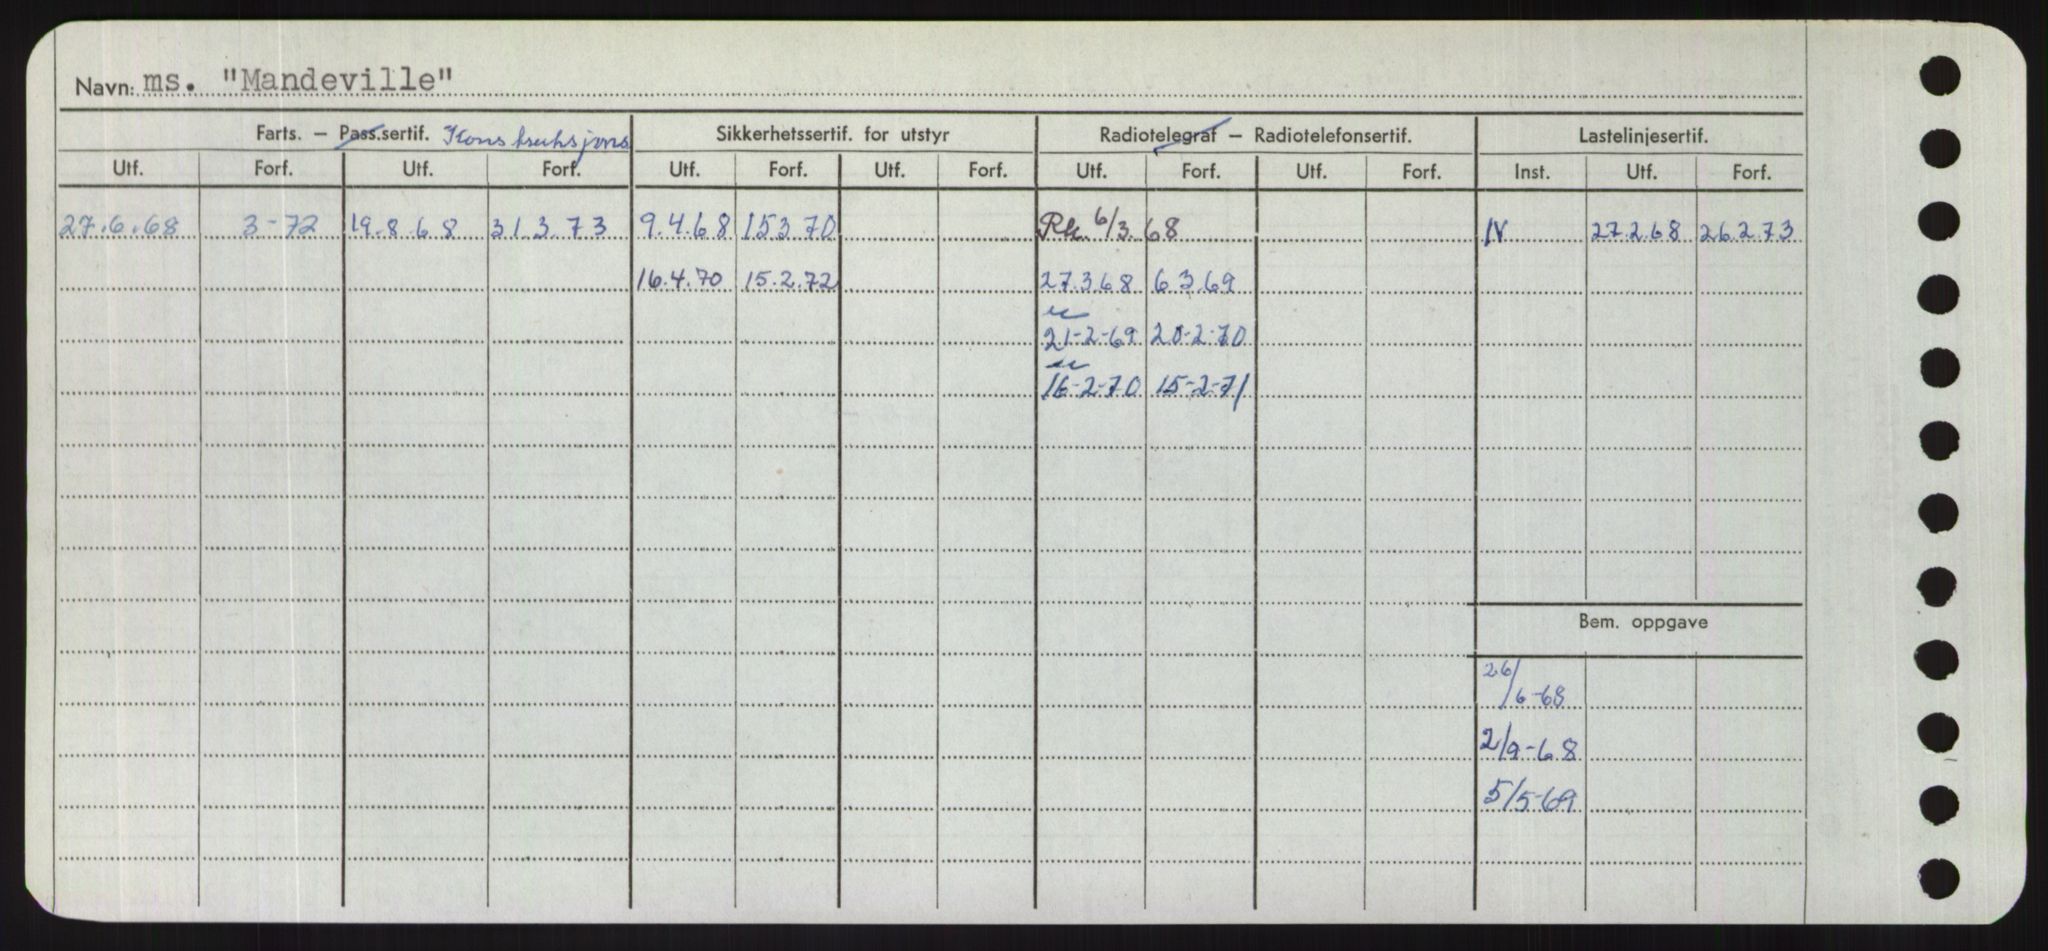 Navn: ms. "Mandeville"
Farts. — Pass.sertif. Konstruksjons Sikkerhetssertif. for utstyr Radiotelegraf — Radiotelefonsertif. Lastelinjesertif.
Utf. Forf. Utf. Forf. Utf. Forf. Utf. Forf. Utf. Forf. Utf. Forf. Inst. Utf. Forf.
27.6.68 3-72 19.8.68 31.3.73 9.4.68 15370 6/3.68 IV 27.2.68 26.2.73
16.4.70 15.2.72 27.3.68 6.3.69
21-2-69 20-2-70
16-2-70 15-2-71
Bem. oppgave
26/6-68
2/9-68
5/5-69